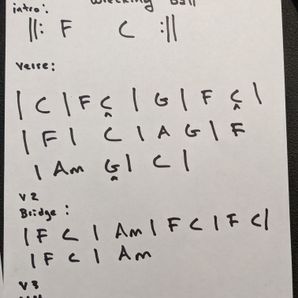 Wrecking Ball
intro:
||: F C :||
Verse:
| C | F C | G | F C |
| F | C | A G | F
| Am G | C |
V2
Bridge:
| F C | Am | F C | F C |
| F C | Am
V3